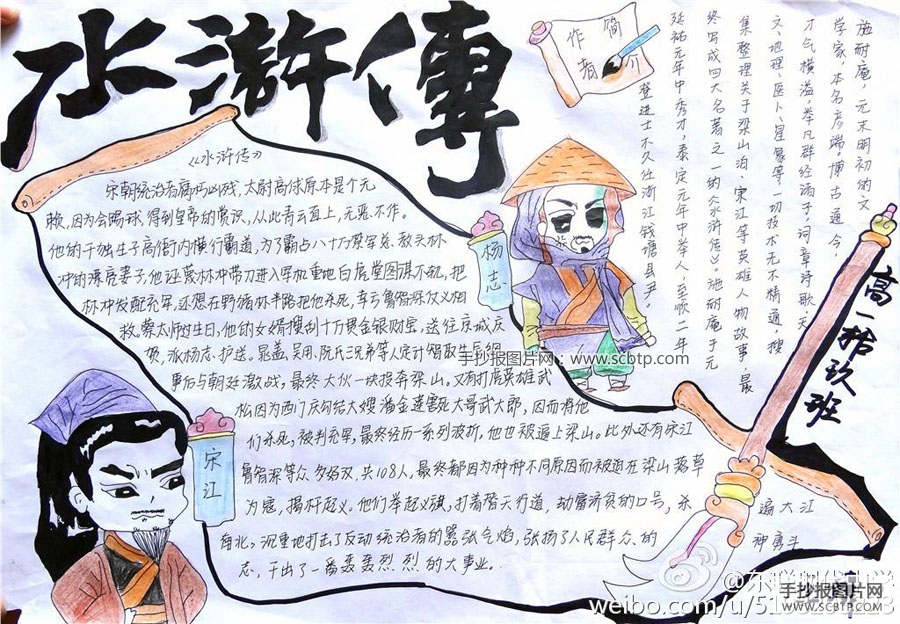 水滸傳
作者简介
施耐庵，元末明初的文
学家，本名彦端博古通今，
才气横溢，举凡群经诸子，词章诗歌，天
文、地理、医卜、星象等，一切技术无不精通，搜
集整理关于梁山泊、宋江等英雄人物故事，最
终写成四大名著之一的《水浒传》。施耐庵于元
延祐元年中秀才，泰定元年中举人，至顺二年
登进士不久任浙江钱塘县尹。
《水浒传》
宋朝统治者腐朽凶残，太尉高俅原本是个无
赖，因为会踢球，得到皇帝的赏识，从此青云直上，无恶不作。
他的干独生子高衙内横行霸道，为了霸占八十万禁军总教头林
冲的漂亮妻子，他诬蔑林冲带刀进入军机重地白虎堂图谋不轨，把
林冲发配充军，还想在野猪林半路把他杀死，幸亏鲁智深仗义相
救。蔡太师过生日，他的女婿搜刮十万贯金银财宝，送往京城庆
贺，派杨志护送。晁盖、吴用、阮氏三兄弟等人定计智取生辰纲
事后与朝廷激战，最终大伙一块投奔梁山。又有打虎英雄武
松因为西门庆勾结大嫂潘金莲害死大哥武大郎，因而将他
们杀死，被判充军，最终经历一系列波折，他也被逼上梁山。此外还有宋江
鲁智深等众多好汉，共108人，最终都因为种种不同原因而被迫在梁山落草
为寇，揭杆起义。他们举起义旗，打着替天行道，劫富济贫的口号，杀
遍大江
南北，沉重地打击了反动统治者的嚣张气焰，张扬了人民群众的
神勇斗
志，干出了一番轰轰烈烈的大事业。
杨志
宋江
高一拾玖班
手抄报图片网：www.scbtp.com
手抄报图片网
WWW.SCBTP.COM